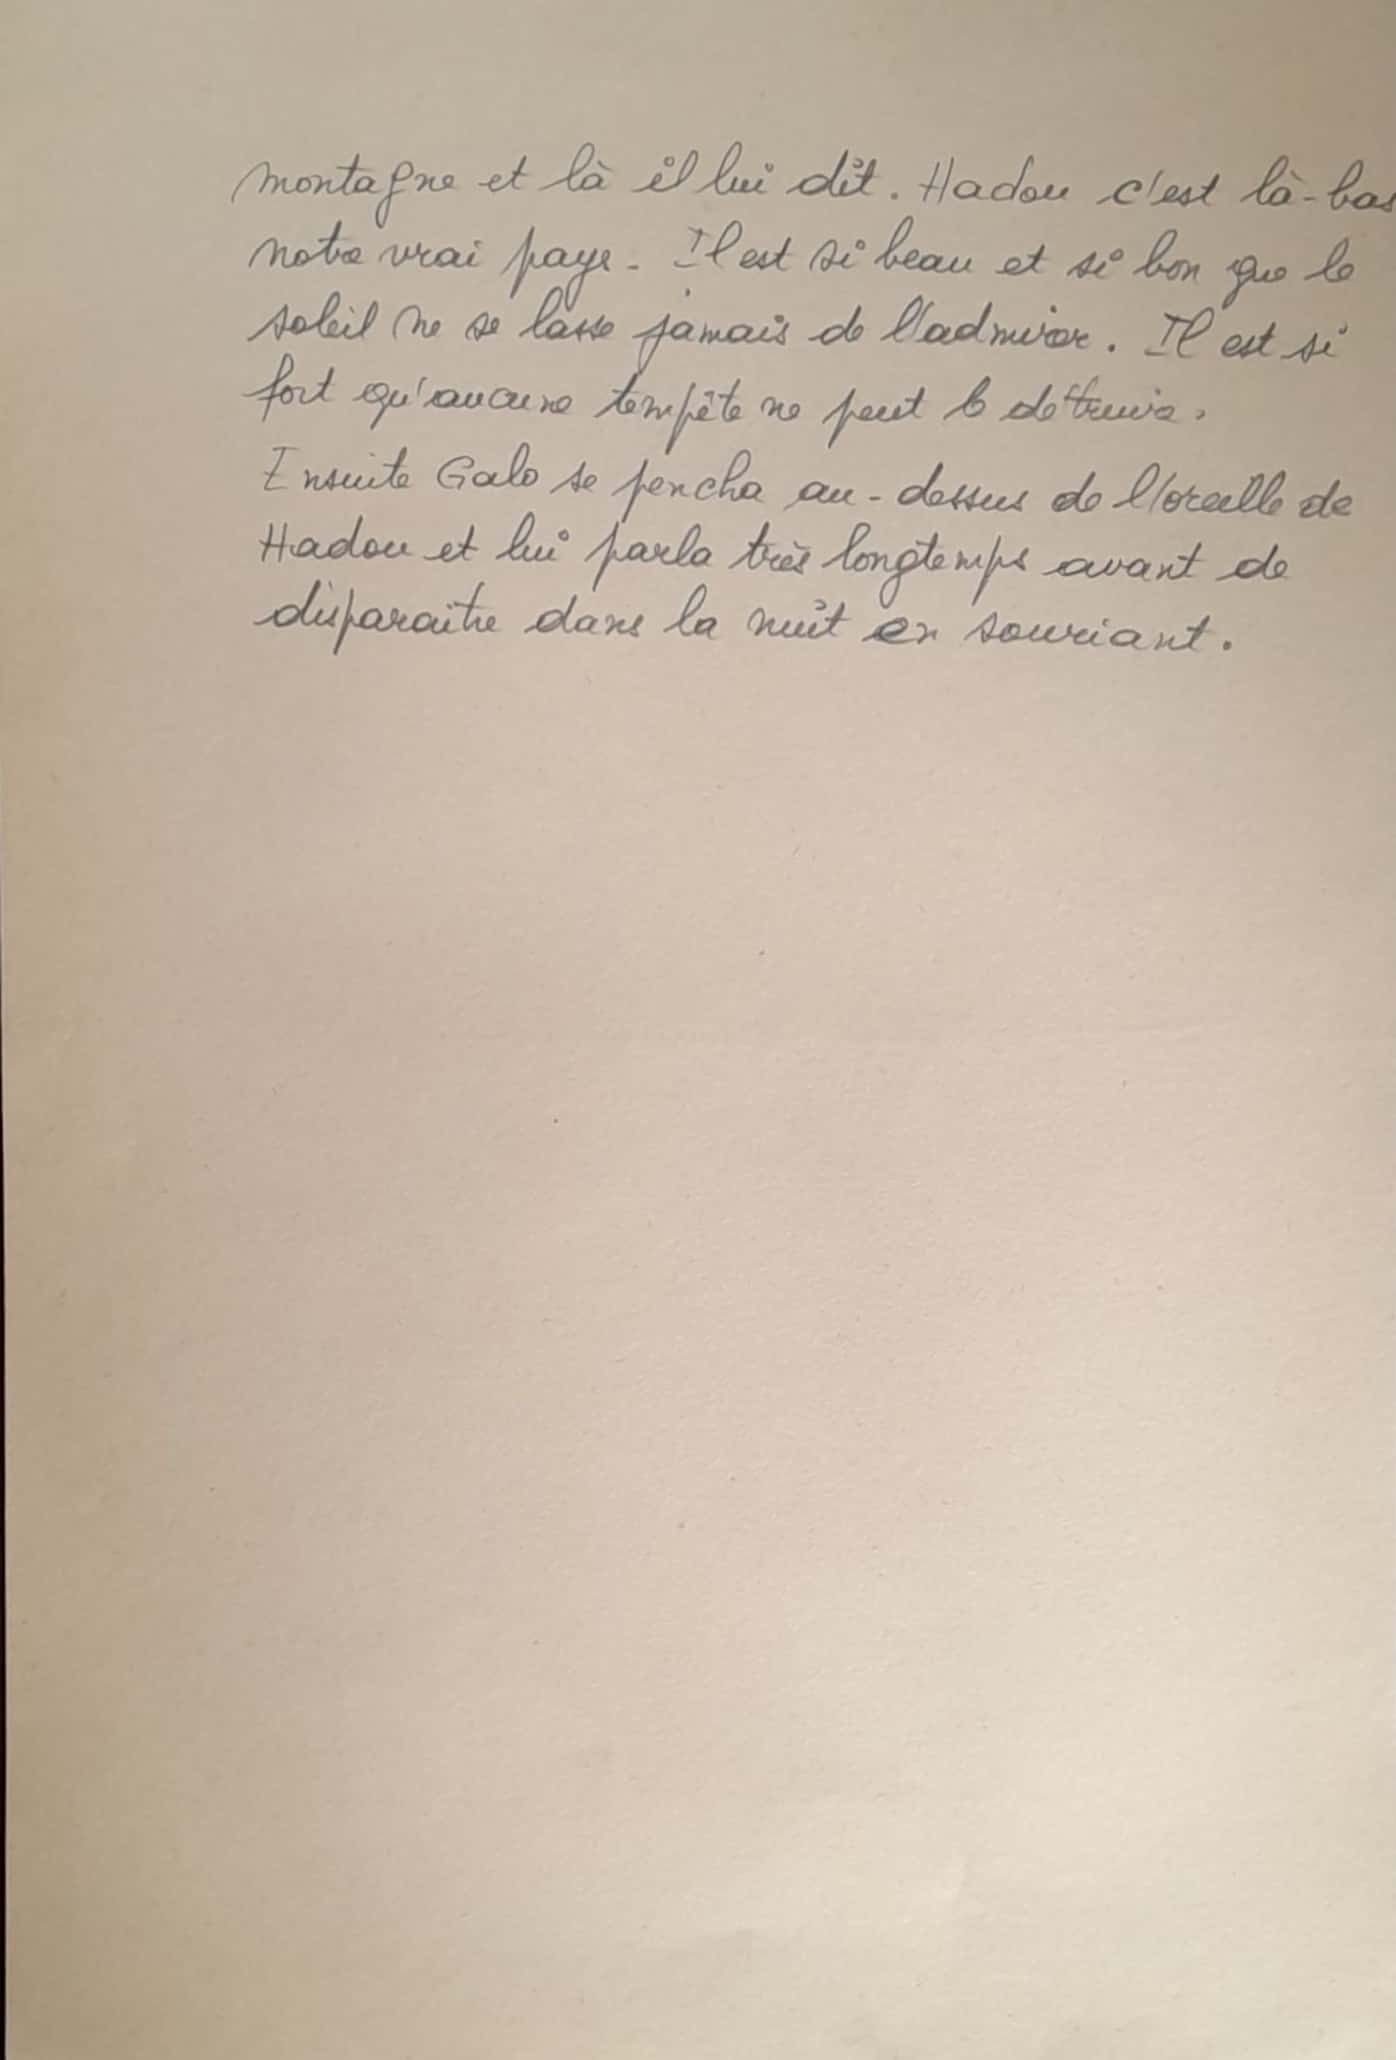 montagne et là il lui dit. Hadou c'est là-bas
notre vrai pays. Il est si beau et si bon que le
soleil ne se lasse jamais de l'admirer. Il est si
fort qu'aucune tempête ne peut le détruire.
Ensuite Galo se pencha au-dessus de l'oreille de
Hadou et lui parla très longtemps avant de
disparaitre dans la nuit en souriant.